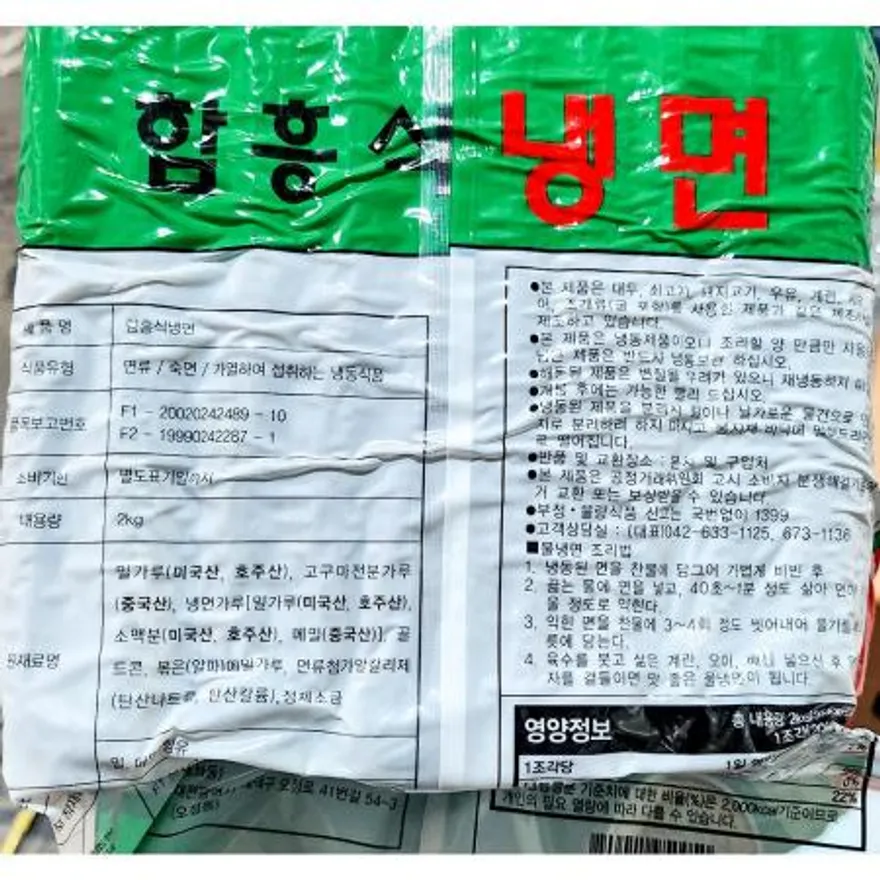 함흥식 냉면
제품명 함흥식냉면
식품유형 면류 / 숙면 / 가열하여 섭취하는 냉동식품
품목보고번호 F1 - 20020242489 - 10
F2 - 19990242287 - 1
소비기한 별도표기일까지
내용량 2kg
원재료명
밀가루(미국산, 호주산), 고구마전분가루
(중국산), 냉면가루[밀가루(미국산, 호주산),
소맥분(미국산, 호주산), 메밀(중국산)], 골
드콘, 볶은(알파)메밀가루, 면류첨가알칼리제
(탄산나트륨, 인산칼륨), 정제소금
밀, 함유
오정로 41번길 54-3
(오정동)
●본 제품은 대두, 쇠고기, 돼지고기, 우유, 계란,
조개류(굴 포함)를 사용한 제품과 같은
제조하고 있습니다.
●본 제품은 냉동제품이오니 조리할 양 만큼만
남은 제품은 반드시 냉동보관 하십시오.
●해동된 제품은 변질될 우려가 있으니 재냉동하지
●개봉 후에는 가능한 빨리 드십시오.
●냉동된 제품을 분리시 칼이나 날카로운 물건으로
지로 분리하려 하지 마시고
로 떨어집니다.
●반품 및 교환장소 : 본사 및 구입처
●본 제품은 공정거래위원회 고시 소비자 분쟁해결기준
거 교환 또는 보상받을 수 있습니다.
●부정·불량식품 신고는 국번없이 1399
●고객상담실 : (대표)042-633-1125, 673-1136
■물냉면 조리법
1. 냉동된 면을 찬물에 담그어 가볍게 비빈 후
2. 끓는 물에 면을 넣고, 40초~1분 정도 삶아
을 정도로 익힌다.
3. 익힌 면을 찬물에 3~4회 정도 씻어내어 물기를
릇에 담는다.
4. 육수를 붓고 삶은 계란, 오이, 넣으신 후
자를 곁들이면 맛 좋은 물냉면이 됩니다.
영양정보 총 내용량 2kg
1조각
1조각당 1일
22%
기준치에 대한 비율(%)은 2,000kcal기준이므로
개인의 필요 열량에 따라 다를 수 있습니다.